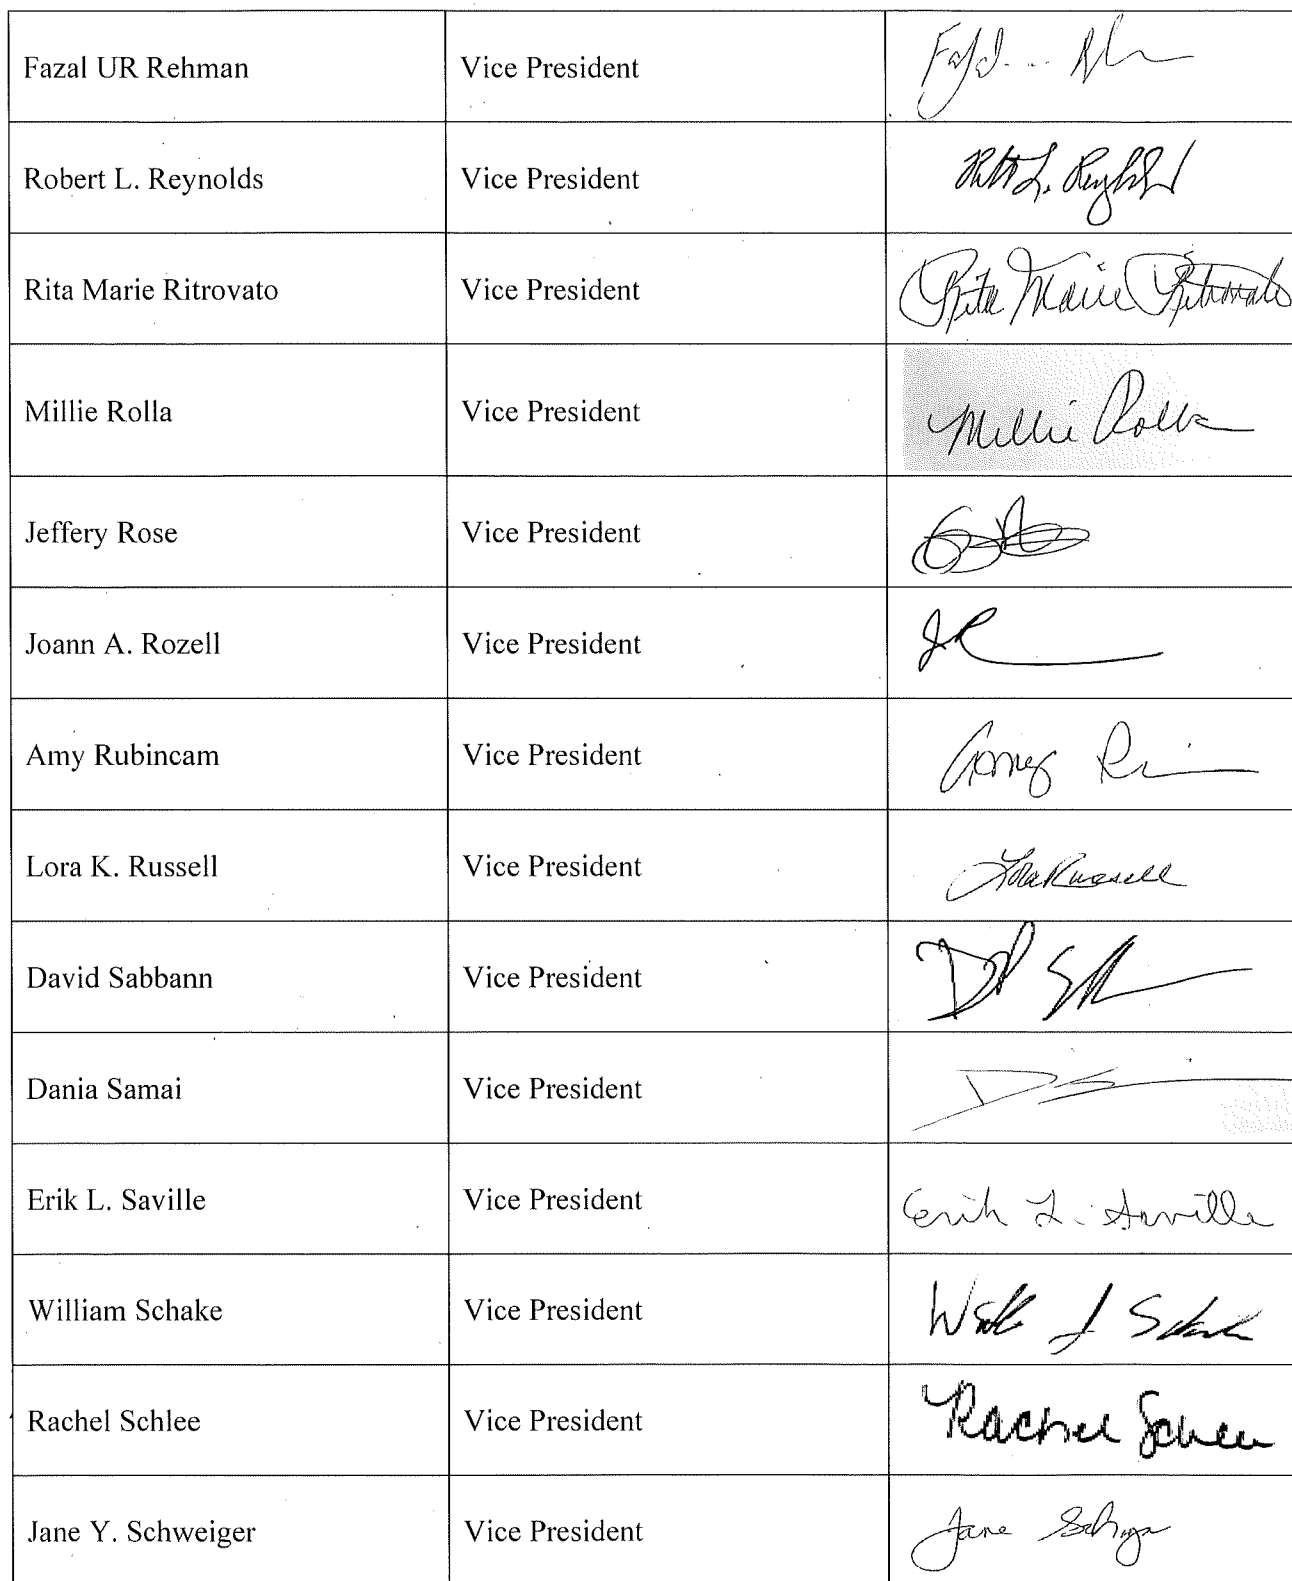 Fazal UR Rehman Vice President
Robert L. Reynolds Vice President Robt L. Reynolds
Rita Marie Ritrovato Vice President Rita Marie Ritrovato
Millie Rolla Vice President Millie Rolla
Jeffery Rose Vice President
Joann A. Rozell Vice President JR
Amy Rubincam Vice President Amy
Lora K. Russell Vice President Lora Russell
David Sabbann Vice President
Dania Samai Vice President DS
Erik L. Saville Vice President Erik L. Saville
William Schake Vice President
Rachel Schlee Vice President Rachel Schlee
Jane Y. Schweiger Vice President Jane